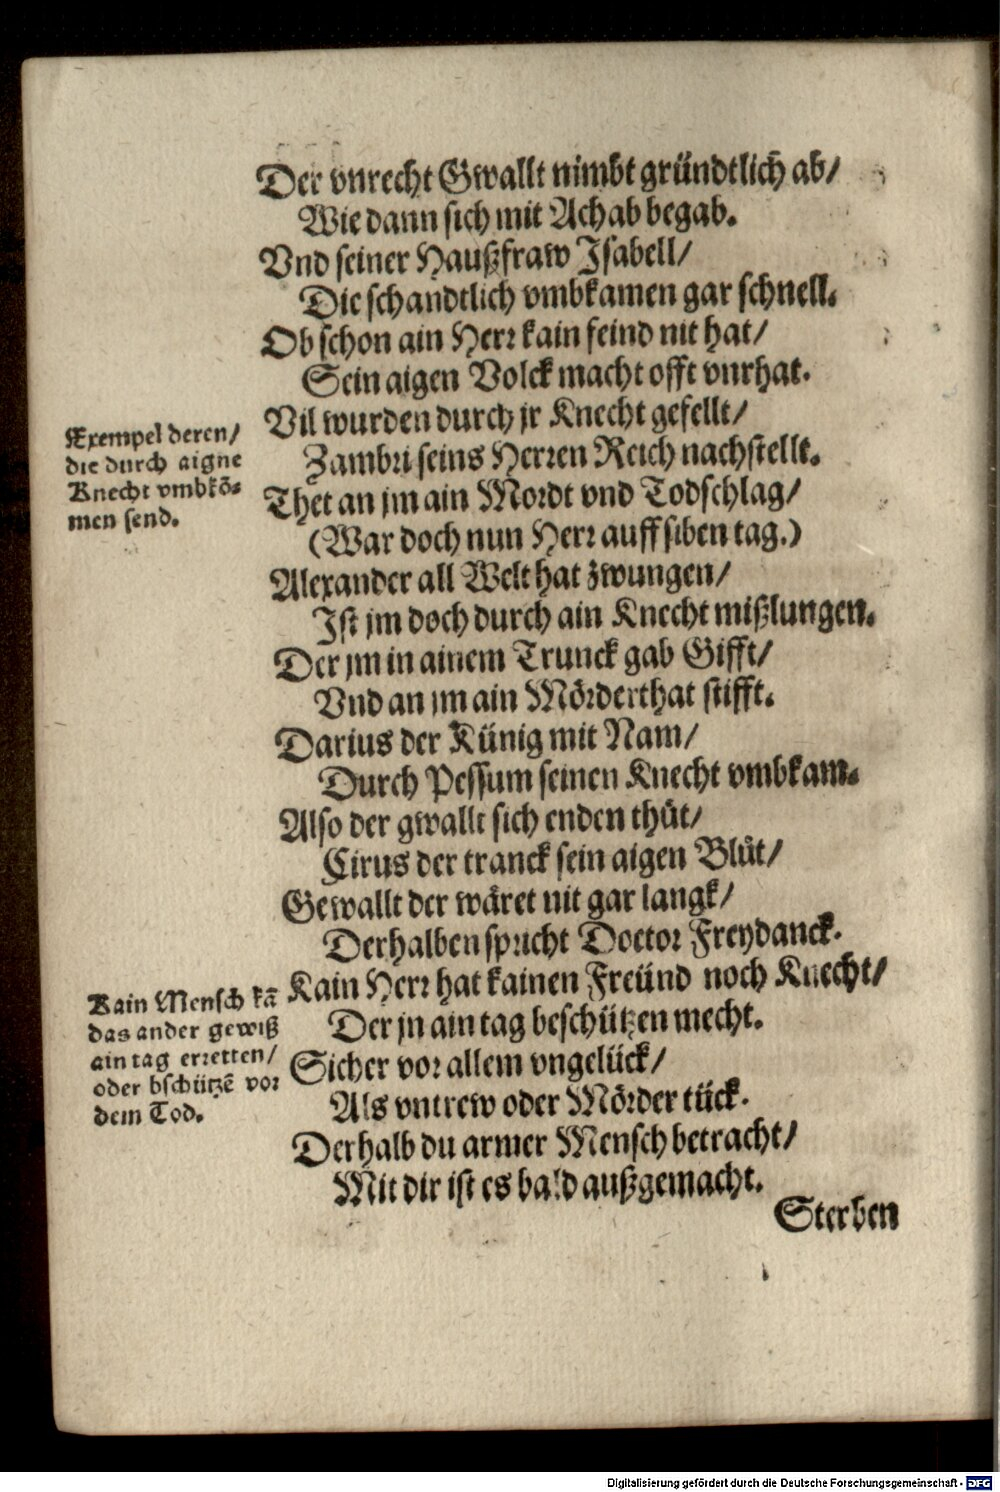 Der vnrecht Gwallt nimbt gründtlich ab/
Wie dann sich mit Achab begab.
Vnd seiner Haußfraw Isabell/
Die schandtlich vmbkamen gar schnell.
Ob schon ain Herr kain feind nit hat/
Sein aigen Volck macht offt vnrhat.
Exempel deren/
die durch aigne
Knecht vmbkō-
men send.
Vil wurden durch jr Knecht gefellt/
Zambri seins Herren Reich nachstellt.
Thet an jm ain Mordt vnd Todschlag/
(War doch nun Herr auff siben tag.)
Alexander all Welt hat zwungen/
Ist jm doch durch ain Knecht mißlungen.
Der jm in ainem Trunck gab Gifft/
Vnd an jm ain Mörderthat stifft.
Darius der Künig mit Nam/
Durch Pessum seinen Knecht vmbkam.
Also der gwallt sich enden thůt/
Cirus der tranck sein aigen Blůt/
Gewallt der wäret nit gar langk/
Derhalben spricht Doctor Freydanck.
Kain Mensch kā
das ander gewiß
ain tag erretten/
oder bschützē vor
dem Tod.
Kain Herr hat kainen Freünd noch Knecht/
Der jn ain tag beschützen mecht.
Sicher vor allem vngelück/
Als vntrew oder Mörder tück.
Derhalb du armer Mensch betracht/
Mit dir ist es bald außgemacht.
Sterben
Digitalisierung gefördert durch die Deutsche Forschungsgemeinschaft - DFG